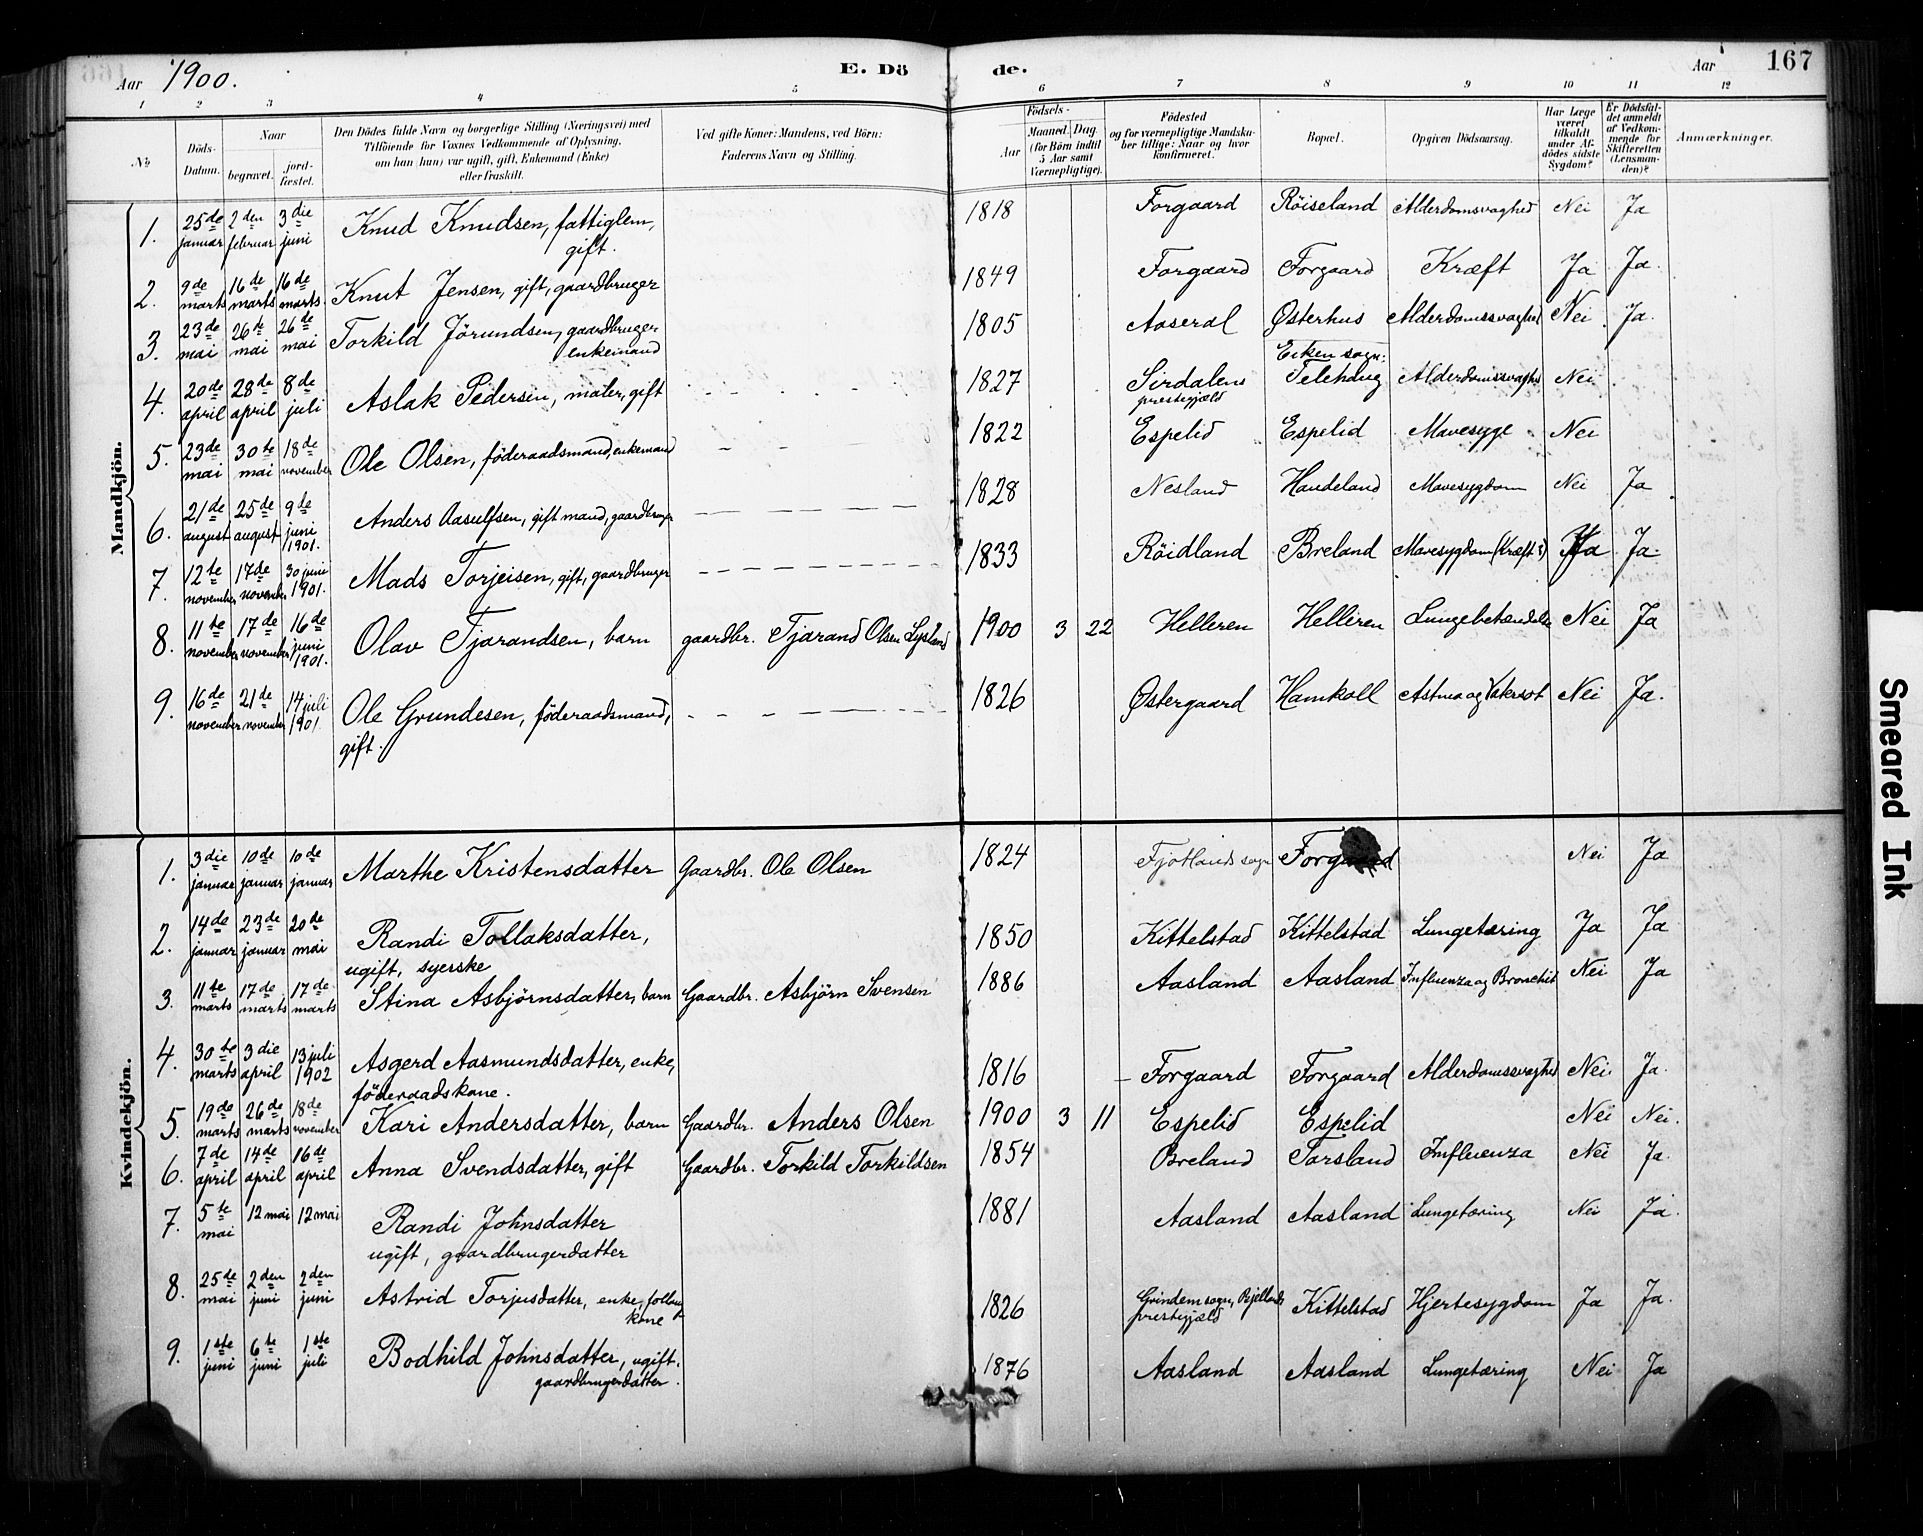 Aar 1900. E. Dö de. Aar 167
1 2 3 4 5 6 7 8 9 10 11 12
№ Döds-Datum. Naar begravet. jordfæstet. Den Dödes fulde Navn og borgerlige Stilling (Næringsvei) med Tilföiende for Voxnes Vedkommende af Oplysning, om han (hun) var ugift, gift, Enkemand (Enke) eller fraskilt. Ved gifte Koner: Mandens, ved Börn: Faderens Navn og Stilling. Födsels- Aar Maaned. Dag. (for Börn indtil 5 Aar samt Værnepligtige). Födested og for værnepligtige Mandskaber tillige: Naar og hvor konfirmeret. Bopæl. Opgiven Dödsaarsag. Har Læge været tilkaldt under Afdödes sidste Sygdom? Er Dödsfaldet anmeldt af Vedkommende for Skifteretten (Lensmanden)? Anmærkninger.
Mandkjön.
1. 25de januar 2den februar 3die juni Knud Knudsen, fattiglem, gift. 1818 Forgaard Röiseland Alderdomsvaghed Nei Ja
2. 9de marts 16de marts 16de marts. Knut Jensen, gift, gaardbruger 1849 Forgaard Forgaard Kræft Ja Ja.
3. 23de mai 26te mai 26de mai Torkild Jörundsen, gaardbruger enkemand 1805 Aaseral Østerhus Alderdomssvaghed Nei Ja.
4. 20de april 28de april 8de juli Aslak Pedersen, maler, gift 1827 Sirdalens prestegjæld sogn: Alderdomssvaghed Nei
5. 23de mai 30te mai 18de november Ole Olsen, föderaadsmand, enkemand 1822 Espelid Espelid Mavesyge Nei
6. 21de august 25de august 9de juni 1901. Anders Aasulfsen, gift mand, gaardbruger 1828 Nesland Haudeland Mavesygdom Nei Ja
7. 12te november 17de november 30 juni 1901. Mads Torjeisen, gift, gaardbruger 1833 Röidland Breland Mavesygdom (Kræft?) Ja Ja.
8. 11te november 17de november 16de juni 1901. Olav Tjarandsen, barn gaardbr. Tjarand Olsen Lysland 1900 3 22 Helleren Helleren Lungebetændelse Nei Ja
9. 16de november 21de november 14 juli 1901. Ole Grundesen, föderaadsmand, gift. 1826 Østergaard Hamkoll Astma og Vatersot Nei Ja.
Kvindekjön.
1. 3die januar 10de januar 10de januar Marthe Kristensdatter Gaardbr. Ole Olsen 1824 Fjotlands sogn Forgaard Nei Ja
2. 14de januar 23de januar 20de mai Randi Tollaksdatter, ugift, syerske 1850 Kittelstad Kittelstad Lungetæring Ja Ja
3. 11te marts 17de marts 17de marts Stina Asbjörnsdatter, barn Gaardbr. Asbjörn Svensen 1886 Aasland Aasland Influenza og Bronchit Nei Ja
4. 30te marts 3die april 13 juli 1902 Asgerd Aasmundsdatter, enke, föderaadskone. 1816 Forgaard Forgaard Alderdomssvaghed Nei Ja.
5. 19de marts 26de marts 18de november Kari Andersdatter, barn Gaardbr. Anders Olsen 1900 3 11 Espelid Espelid Nei Nei.
6. 7de april 14de april 16de april Anna Svendsdatter, gift Gaardbr. Torkild Torkildsen 1854 Breland Tarsland Influenza Nei Ja.
7. 5te mai 12 mai 12 mai Randi Johnsdatter ugift, gaardbrugerdatter 1881 Aasland Aasland Lungetæring Nei Ja.
8. 25de mai 2den juni 2den juni Astrid Torjusdatter, enke, kone 1826 Grindem sogn, Bjellands prestegjæld Kittelstad Hjertesygdom Ja Ja.
9. 1ste juni 6te juni 1ste juli Bodhild Johnsdatter, ugift. gaardbrugerdatter. 1876 Aasland Aasland Lungetæring Nei Ja
Smeared Ink